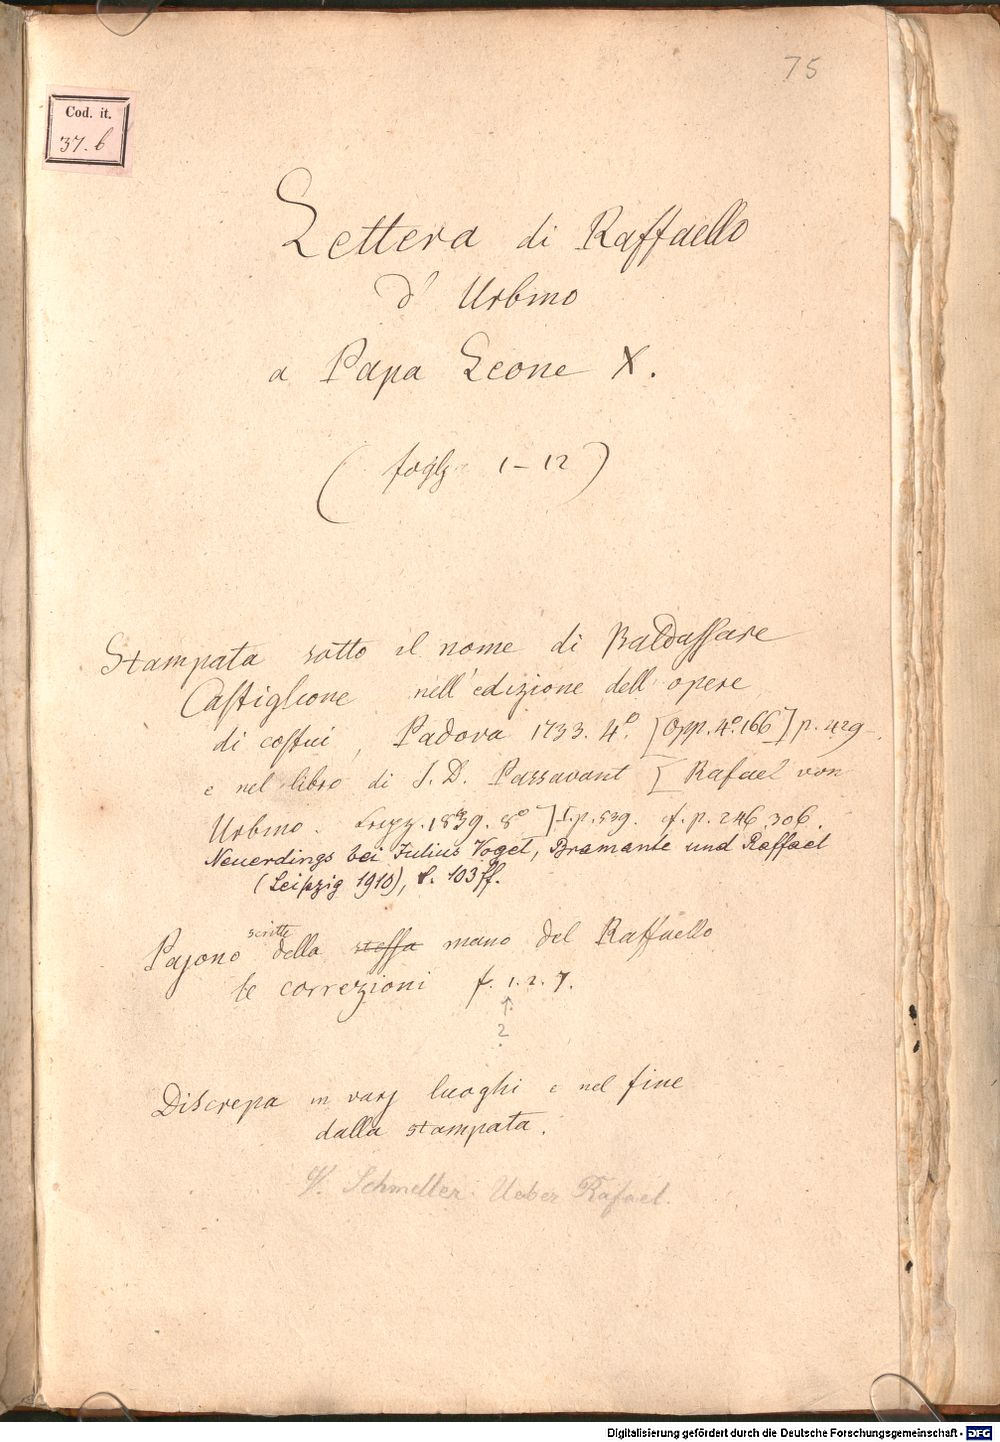 75
Cod. it.
37. b
Lettera di Raffaello
d' Urbino
a Papa Leone X.
( fogli 1–12 )
Stampata sotto il nome di Baldassare
Castiglione nell' edizione dell opere
di costui, Padova 1733. 4º. [Opp. 4º. 166] p. 429.
e nel libro di J. D. Passavant [Rafael von
Urbino. Leipz. 1839. 8º] I. p. 539. cf. p. 246. 306.
Neuerdings bei Julius Vogel, Bramante und Raffael
(Leipzig 1910), S. 103 ff.
scritte
Pajono della stessa mano del Raffaello
le correzioni f. 1. 2. 7.
?
Discrepa in varj luoghi e nel fine
dalla stampata.
V. Schmeller Ueber Rafael.
Digitalisierung gefördert durch die Deutsche Forschungsgemeinschaft - DFG